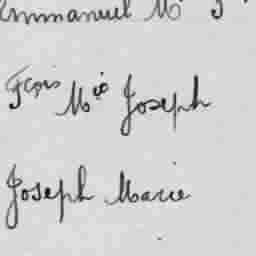 Emmanuel Mie J
Fçois Mie Joseph
Joseph Marie